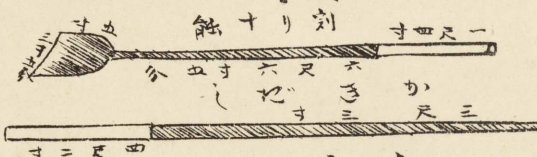 一尺四寸
刻り十能
五寸
六尺六寸五分
かきだし
三尺三寸
四尺二寸